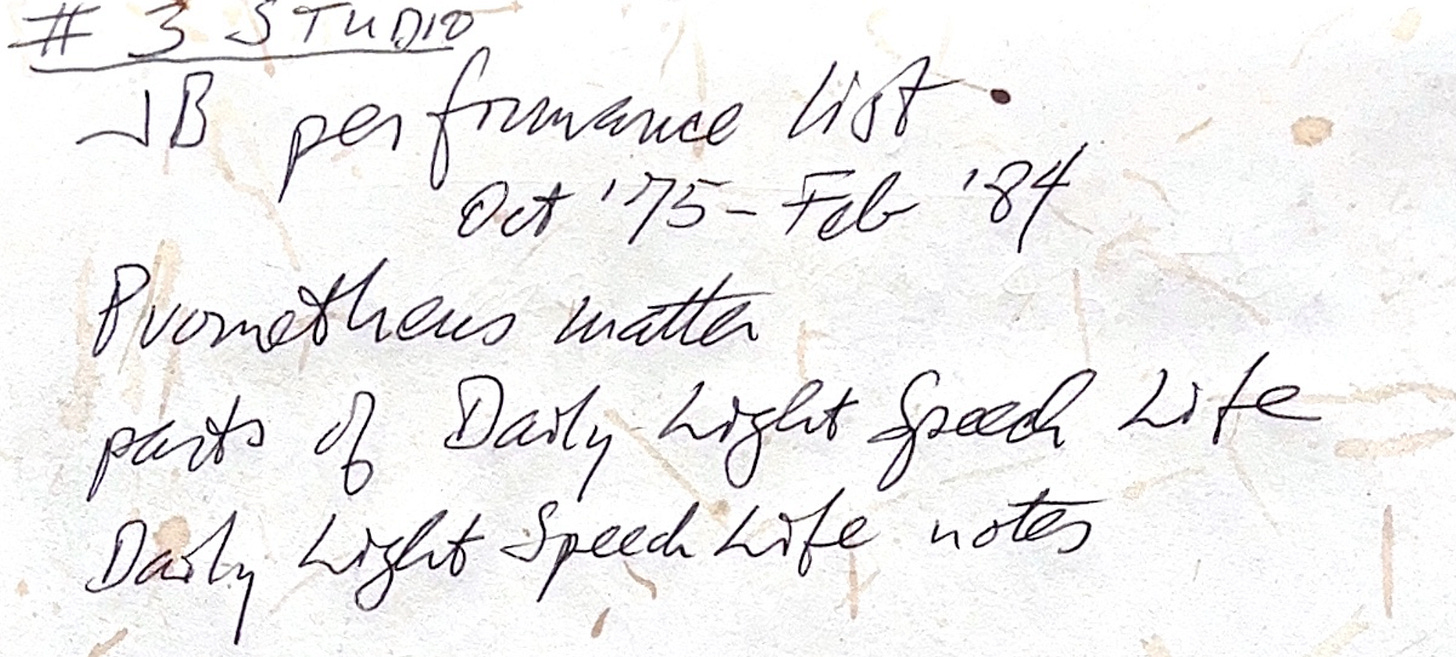 # 3 STUDIO
JB performance list
Oct '75 - Feb '84
Prometheus matter
parts of Daily Light Speech Life
Daily Light Speech Life notes